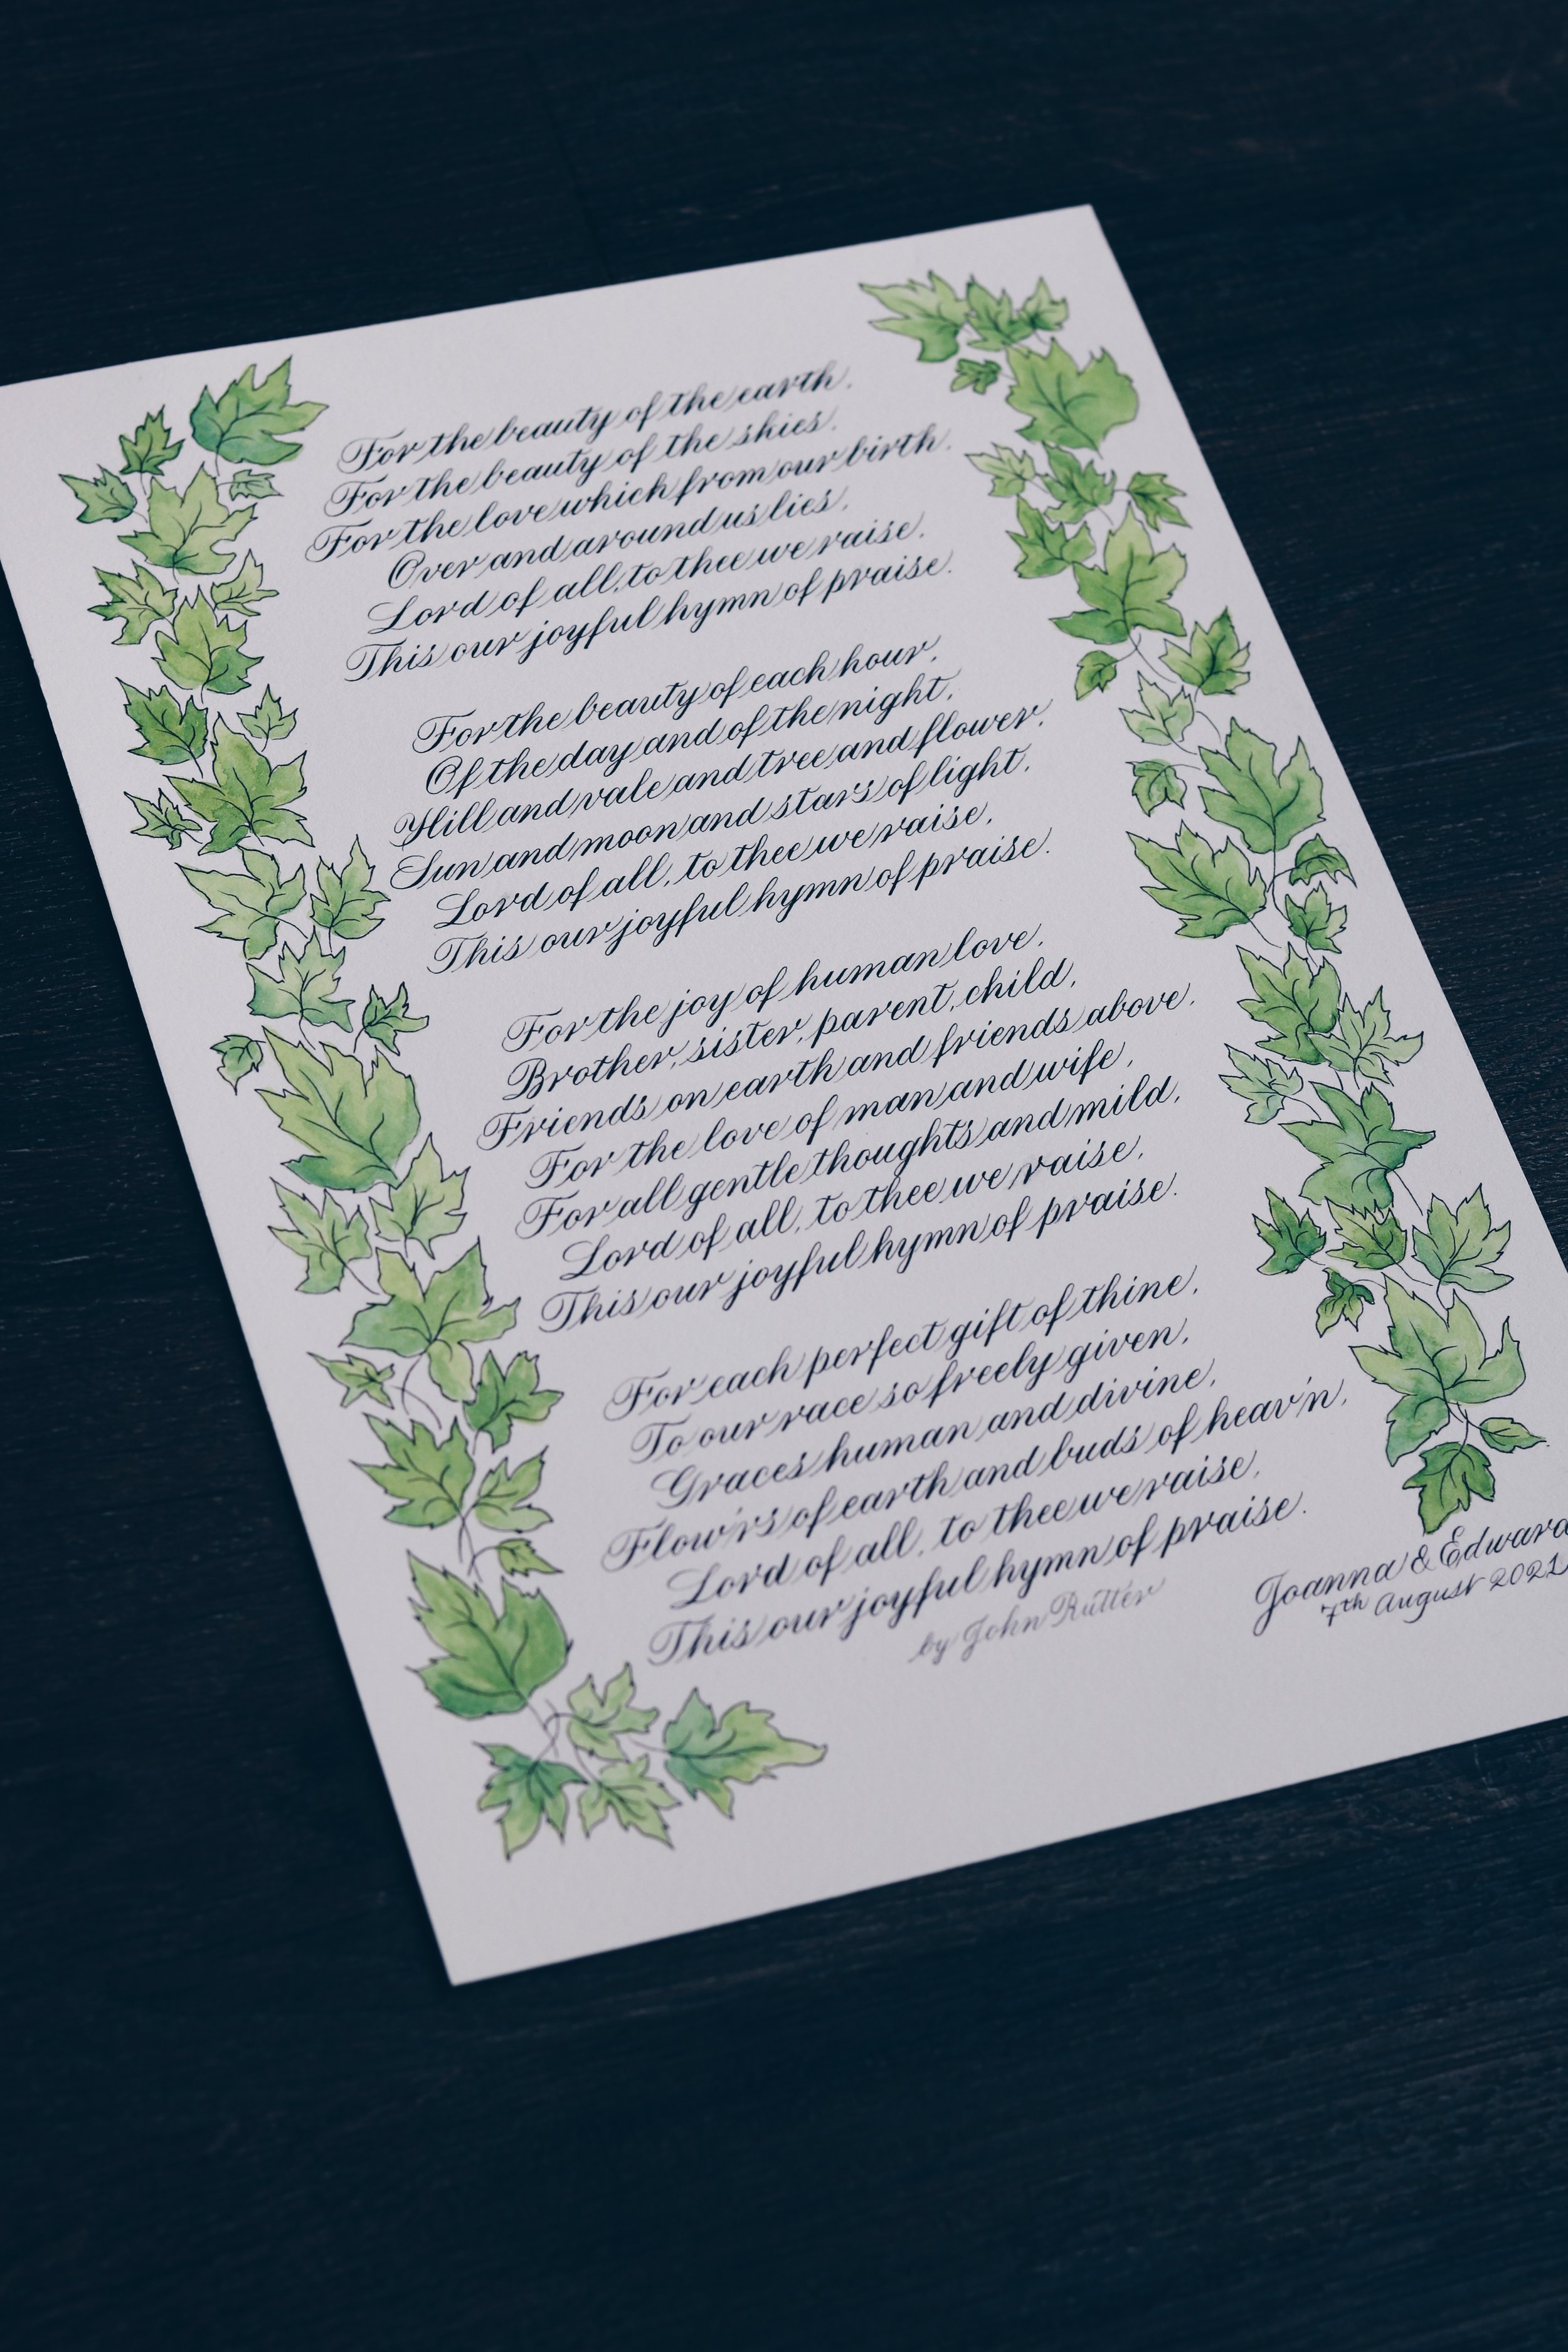 For the beauty of the earth,
For the beauty of the skies,
For the love which from our birth,
Over and around us lies,
Lord of all, to thee we raise,
This our joyful hymn of praise.
For the beauty of each hour,
Of the day and of the night,
Hill and vale and tree and flower,
Sun and moon and stars of light,
Lord of all, to thee we raise,
This our joyful hymn of praise.
For the joy of human love,
Brother, sister, parent, child,
Friends on earth and friends above,
For the love of man and wife,
For all gentle thoughts and mild,
Lord of all, to thee we raise,
This our joyful hymn of praise.
For each perfect gift of thine,
To our race so freely given,
Graces human and divine,
Flow'rs of earth and buds of heav'n,
Lord of all, to thee we raise,
This our joyful hymn of praise.
by John Rutter
Joanna & Edward
7th August 2021